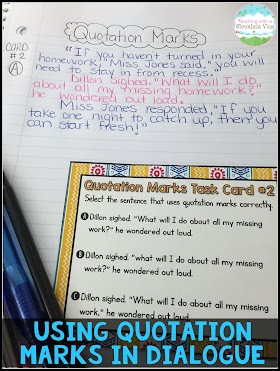 Teaching with a
Mountain View
Quotation Marks
CARD
#2
A
"If you haven't turned in your
homework," Miss Jones said, "you will
need to stay in from recess."
Dillon Sighed. "What will I do
about all my missing homework?"
he wondered out loud.
Miss Jones responded, "If you
take one night to catch up, then you
can start fresh!"
Quotation Marks Task Card #2
Select the sentence that uses quotation marks correctly.
A Dillon sighed. "What will I do about all my missing
work?" he wondered out loud.
B Dillon sighed. "What will I do about all my missing
work? he wondered out loud.
C Dillon sighed. "What will I do about all my missing
work," he wondered out loud.
USING QUOTATION
MARKS IN DIALOGUE